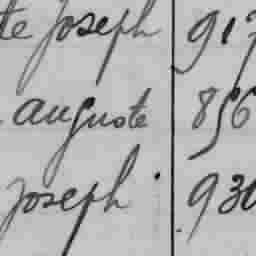 te Joseph 917
auguste 856
Joseph 930